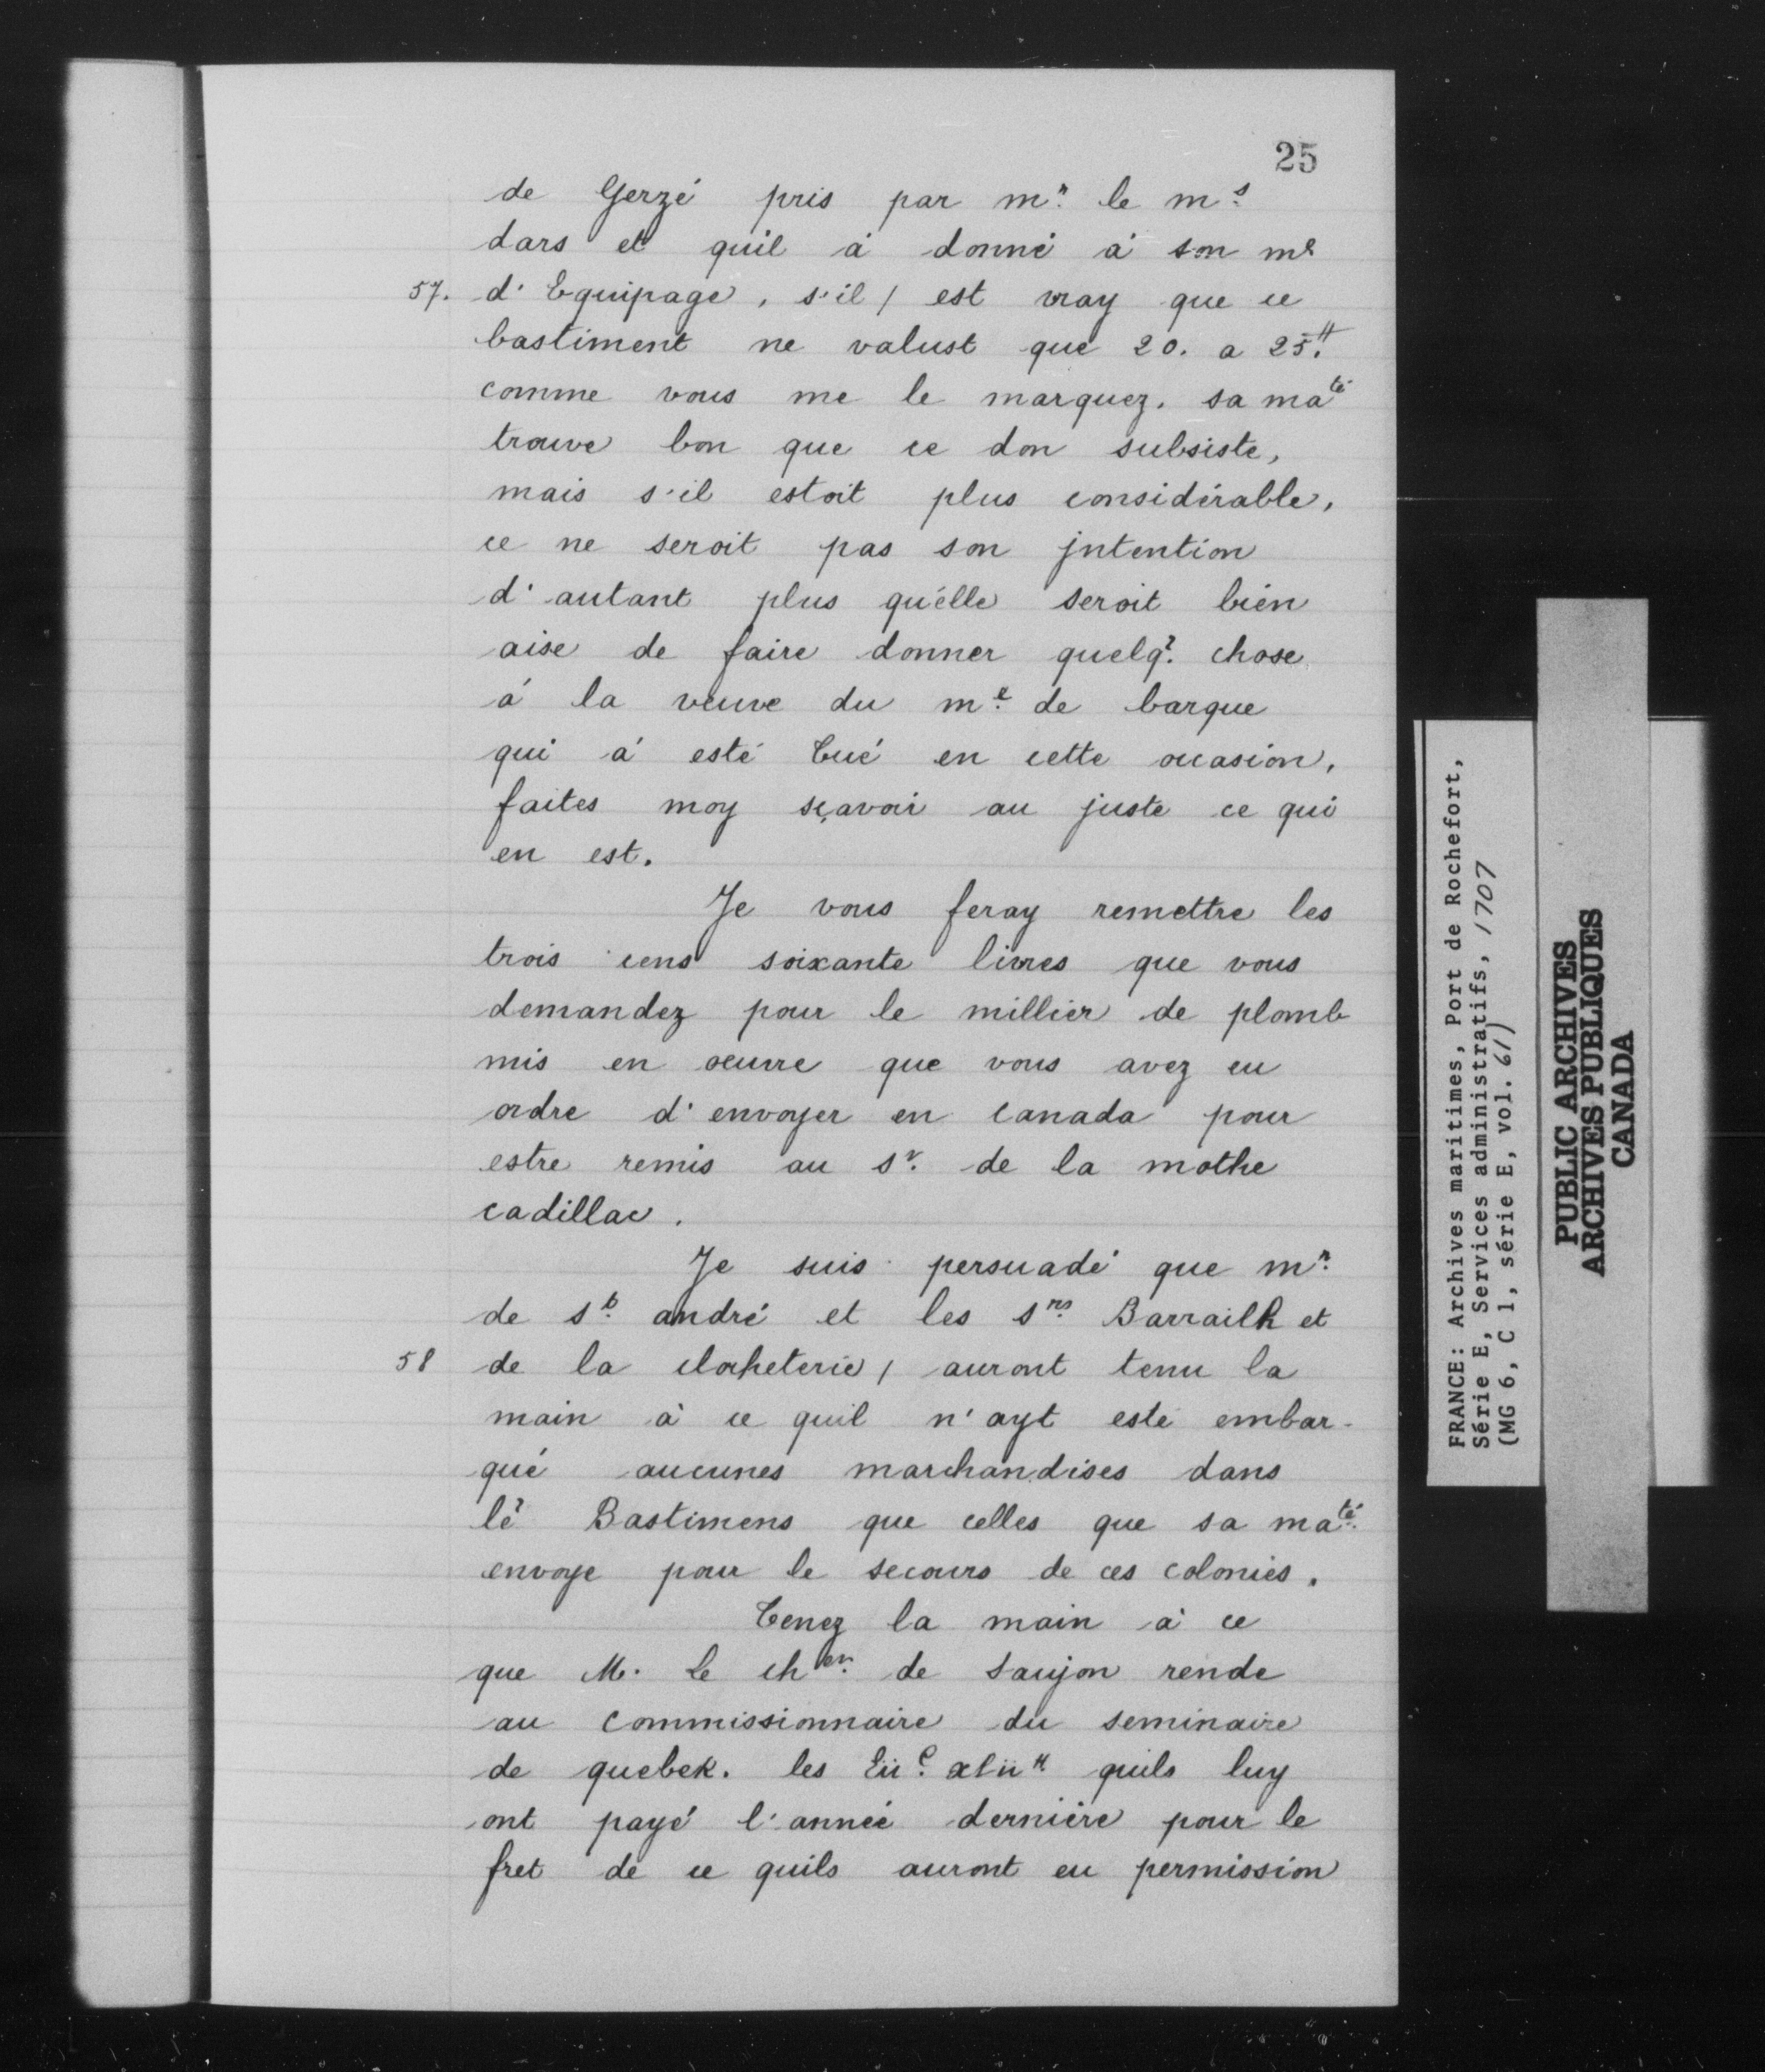 25
de Gerzé pris par mr. le ms.
dars et quil à donné à son me
57. d'Equipage, s'il / est vray que ce
bastiment ne valust que 20. a 25.tt
comme vous me le marquez. sa maté
trouve bon que ce don subsiste,
mais s'il estoit plus considérable,
ce ne seroit pas son jntention
d'autant plus qu'elle seroit bien
aise de faire donner quelq? chose
à la veuve du me. de barque
qui à esté tué en cette occasion,
faites moy sçavoir au juste ce qui
en est.
Je vous feray remettre les
trois cens soixante livres que vous
demandez pour le millier de plomb
mis en oeuvre que vous avez eu
ordre d'envoyer en canada pour
estre remis au sr. de la mothe
cadillac.
Je suis persuadé que mr.
de st. andré et les srs. Barrailh et
58 de la clocheterie / auront tenu la
main à ce quil n'ayt esté embar-
qué aucunes marchandises dans
le? Bastimens que celles que sa maté.
envoye pour le secours de ces colonies.
Tenez la main à ce
que M. le cher. de saujon rende
au commissionnaire du seminaire
de quebek. les quils luy
ont payé l'année dernière pour le
fret de ce quils auront eu permission
FRANCE: Archives maritimes, Port de Rochefort,
Série E, Services administratifs, 1707
(MG 6, C 1, série E, vol. 61)
PUBLIC ARCHIVES
ARCHIVES PUBLIQUES
CANADA